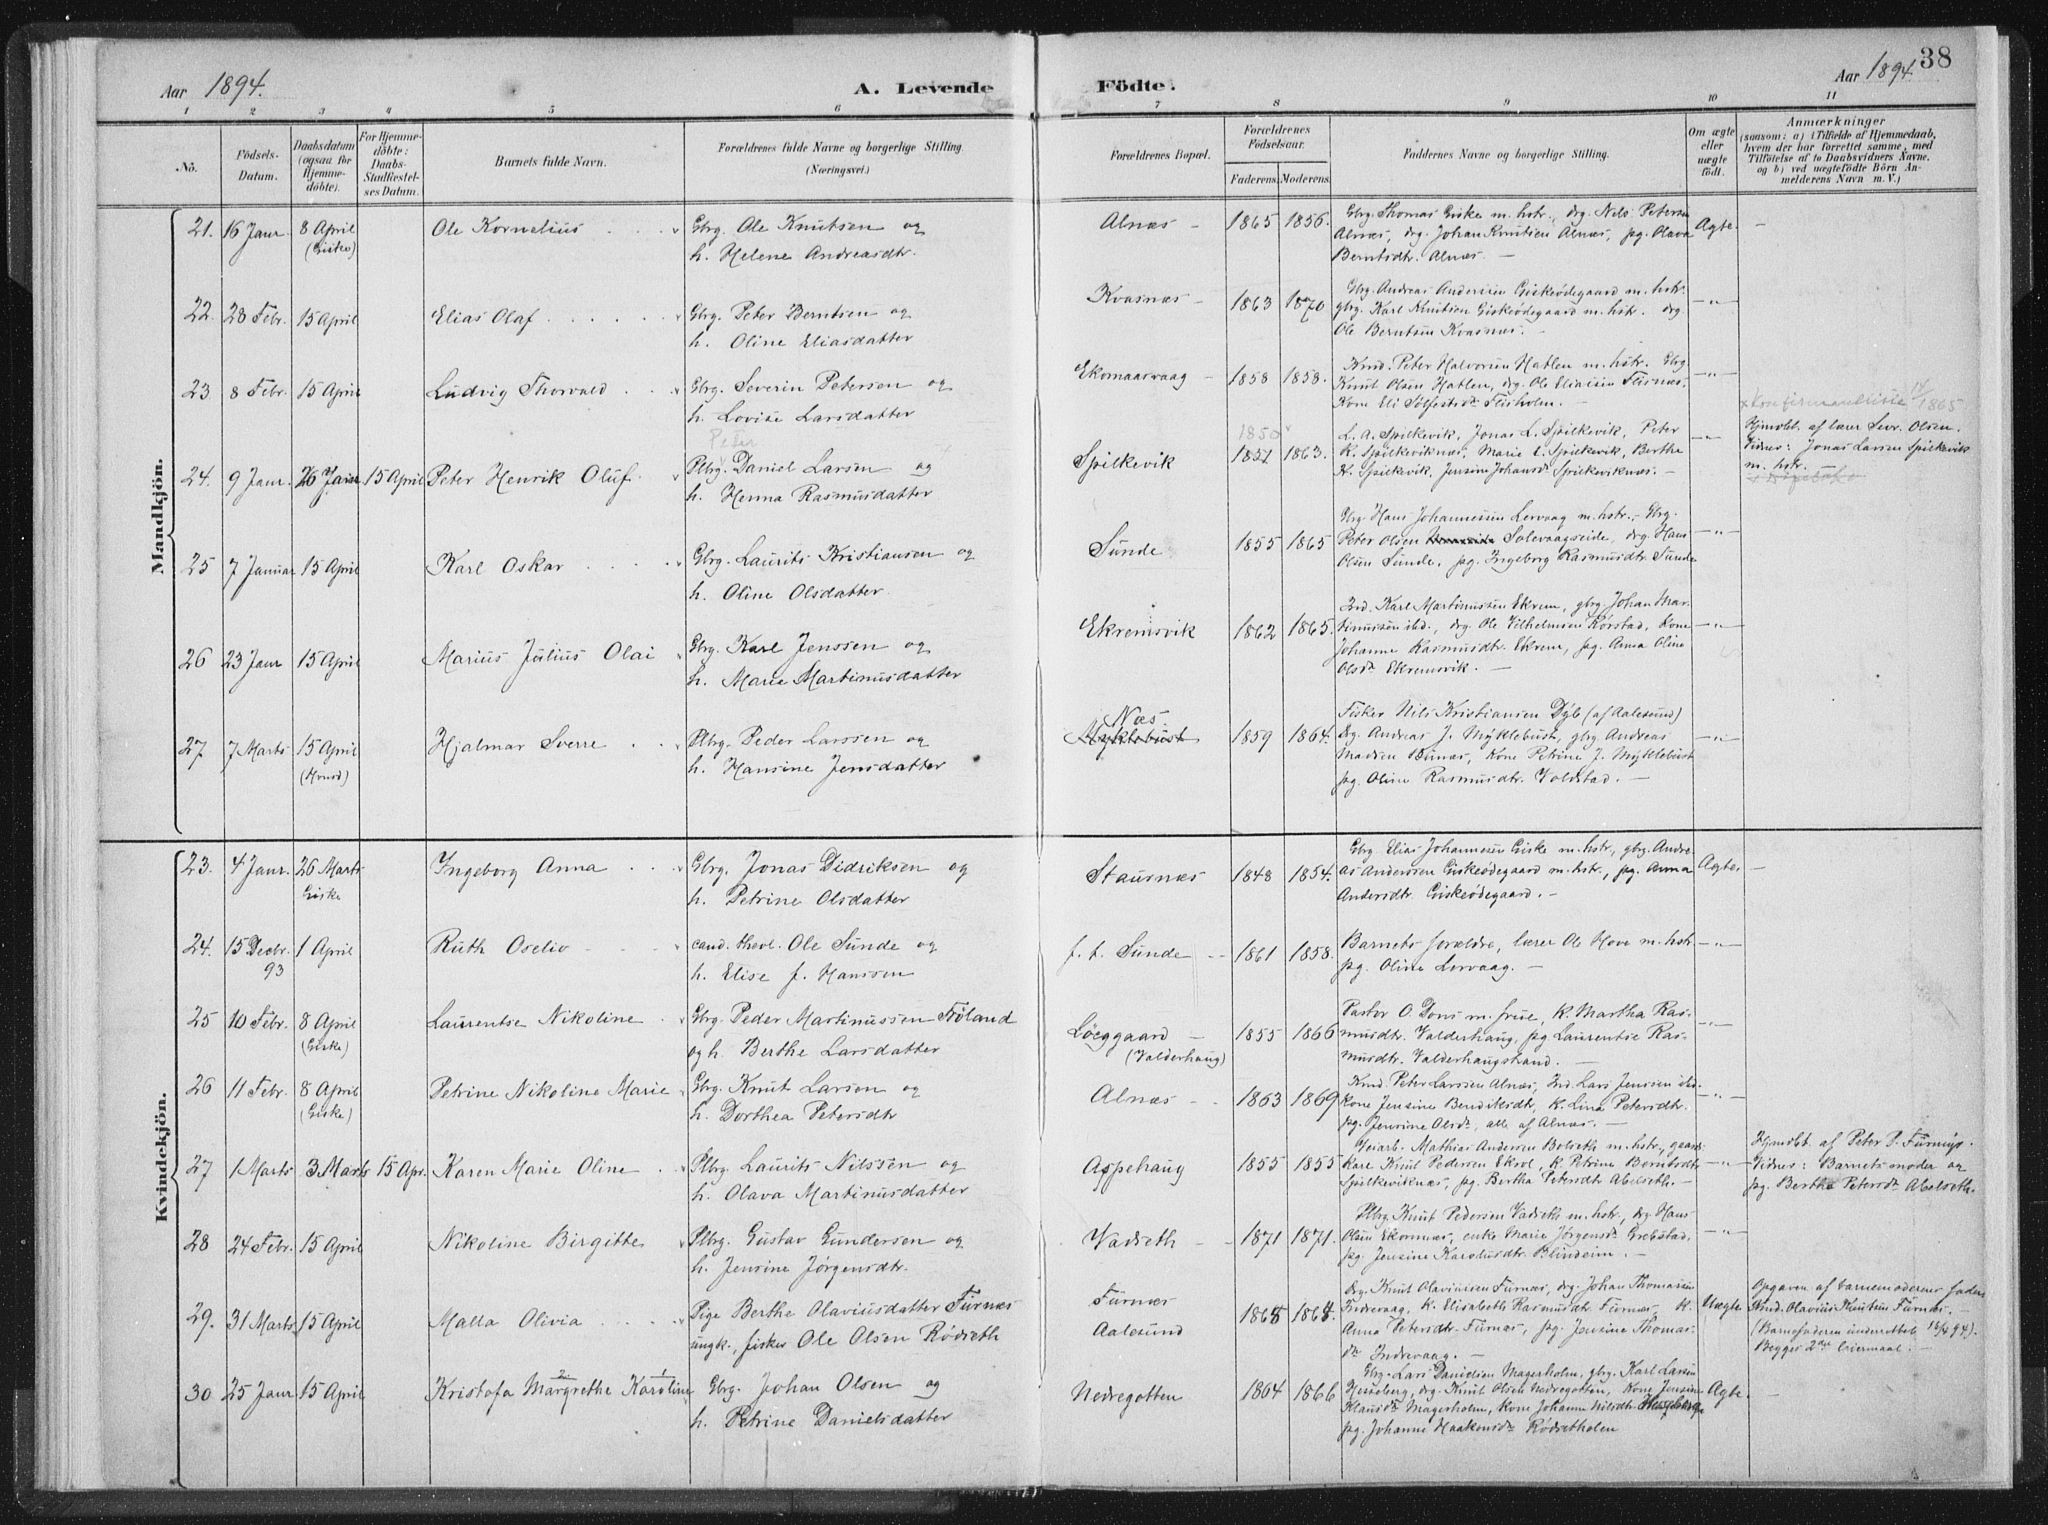 38
Aar 1894.
A. Levende
Födte.
Aar 1894.
1 2 3 4 5 6 7 8 9 10 11
No.
Födsels-Datum.
Daabsdatum (ogsaa for Hjemmedöbte).
For Hjemmedöbte: Daabs-Stadfæstelses Datum.
Barnets fulde Navn.
Forældrenes fulde Navne og borgerlige Stilling. (Næringsvei.)
Forældrenes Bopæl.
Forældrenes Födselsaar.
Faderens. Moderens.
Faddernes Navne og borgerlige Stilling.
Om ægte eller uægte födt.
Anmærkninger
(saasom: a) i Tilfælde af Hjemmedaab,
hvem der har forrettet samme, med
Tilföielse af to Daabsvidners Navne,
og b) ved uægtefödte Börn An-
melderens Navn m. V.)
Mandkjön.
21. 16 Janr 8 April (Giske) Ole Kornelius Gbrg. Ole Knutsen og
h. Helene Andreasdtr.
Alnæs 1865 1856.
Gbrg. Thomas Giske m. hstr., drg. Nils Petersen
Alnæs, drg. Johan Knutsen Alnæs, pg. Olava
Berntsdtr. Alnæs. —
Ægte. —
22. 28 Febr. 15 April Elias Olaf Gbrg. Peter Berntsen og
h. Oline Eliasdatter
Kvasnæs 1863 1870
Gbrg. Andreas Andersen Giskeødegaard m. hstr.
gbrg. Karl Knutsen Giskeødegaard m. hstr. drg.
Ole Berntsen Kvasnæs. —
—"—
23 8 Febr. 15 April Ludvig Thorvald Gbrg. Severin Petersen og
h. Lovise Larsdatter
Ekornaasvaag 1858 1858.
Knud. Peter Halvorsen Hatlen m. hstr. Gbrg
Knut Olsen Hatlen, drg. Ole Eliassen Flisnæs,
Kone Eli Sølfestsdtr Flisholm. —
—"—
24. 9 Janr. 26 Janr 15 April Peter Henrik Oluf. Peter
Plbrg. Daniel Larsen og
h. Henna Rasmusdatter
Spilkevik 1850 1851 1863.
L. A. Spilkevik, Jonas L. Spilkevik, Peter
K. Spilkeviknæs, Marie L. Spilkevik, Berthe
N. Spilkevik, Jensine Johansdtr Spilkeviknæs. —
—"—
1865
Hjmdbt. af lærer Sevr. Olsen.
Vidner: Jonas Larsen Spilkevik
m. hstr.
25 7 Januar 15 April Karl Oskar Gbrg. Laurits Kristiansen og
h. Oline Olsdatter
Sunde 1855 1865
Gbrg. Hans Johannessen Lervaag m. hstr., Gbrg.
Peter Olsen Solevaagseide, drg. Hans
Olsen Sunde, pg. Ingeborg Rasmusdtr. Sunde
—"—
26 23 Janr 15 April Marius Julius Olai Gbrg. Karl Jenssen og
h. Marie Martinusdatter
Ekremsvik 1862 1865.
Ind. Karl Martinussen Ekrem, gbrg Johan Mar-
tinussen ibd., drg. Ole Vilhelmsen Rörstad, Kone
Johanne Rasmusdtr. Ekrem, pg. Anna Oline
Olsdtr Ekremsvik. —
—"—
27 7 Marts 15 April Hjalmar Sverre Plbrg. Peder Larssen og
h. Hansine Jensdatter
Næs.
Myklebust 1859 1864.
Fisker Nils Kristiansen Dyb (af Aalesund)
drg. Andreas J. Myklebust, gbrg Andreas
Madsen, Kone Petrine J. Myklebust
pg. Oline Rasmusdtr. Voldstad. —
—"—
Kvindekjön.
23. 4 Janr. 26 Marts Giske Ingeborg Anna Gbrg. Jonas Didriksen og
h. Petrine Olsdatter
Staursnæs 1848 1854.
Gbrg Elias Johannesen Giske m. hstr, gbrg. Andre-
as Anderssen Giskeødegaard m. hstr., pg. Anna
Andersdtr. Giskeødegaard. —
Ægte —
24. 15 Decbr. 93 1 April Ruth Oselio cand. theol. Ole Sunde og
h. Elise f. Hanssen
f. t. Sunde 1861 1858.
Barnets forældre, lærer Ole Hove m. hstr
pg. Oline Lervaag. —
—"—
25 10 Febr. 8 April (Giske) Laurentse Nikoline Gbrg. Peder Martinussen Föland
og h. Berthe Larsdatter
Löeggaard (Valderhaug) 1855 1866
Pastor O. Dons m. frue, K. Martha Ras-
musdtr. Valderhaug, pg Laurentse Ras-
musdtr. Valderhaugstrand. —
—"—
26 11 Febr. 8 April (Giske) Petrine Nikoline Marie Gbrg. Knut Larsen og
h. Dorthea Petersdtr
Alnæs 1863 1869
Knud. Peter Larssen Alnæs, Ind. Lars Jenssen ibd.
kone Jensine Bendiksdtr, K. Lina Petersdtr.
pg. Jensine Olsdtr, alle af Alnæs. —
—"—
27 1 Marts 3 Marts 15 Apr. Karen Marie Oline Plbrg. Laurits Nilssen og
h. Olava Martinusdatter
Aspehaug 1855 1855
Veiarb. Mathias Andersen Bolseth m. hstr, gaard-
karl Knut Pedersen Eksol, K. Petrine Berntsdtr
Spilkeviknæs, pg. Bertha Petersdtr Abelseth. —
—"—
Hjmdbt. af Peter P. Furmyr.
Vidner: Barnets moder og
pg. Berthe Petersdtr Abelseth.
28 24 Febr. 15 April Nikoline Birgitte Plbrg. Gustav Gundersen og
h. Jensine Jørgensdtr.
Vadseth 1871 1871.
Plbrg. Knut Pedersen Vadseth m. hstr., drg Hans
Olsen Ekornæs, enke Marie Jørgensdtr Grebstad,
pg. Jensine Karolusdtr. Blindeim. —
—"—
29. 31 Marts 15 April Malla Olivia Pige Berthe Olaviusdatter Furnæs
ungk., fisker Ole Olsen Rødseth
Furnæs
Aalesund 1868 1868.
Drg. Knut Olaviussen Furnæs, drg. Johan Thomassen
Indrevaag, K. Elisabeth Rasmusdtr. Furnæs, K.
Anna Petersdtr. Furnæs, pg. Jensine Thomas-
dtr Indrevaag. —
Uægte
Opgaven af barnemoderens fader
Knud. Olavius Knutsen Furnæs. —
(Barnefaderen underrettet 18/4 94).
Begges 2det leiermaal. —
30 25 Janr 15 April Kristofa Margrethe Karoline
2. 1
Gbrg. Johan Olsen og
h. Petrine Danielsdatter
Nedregotten 1864 1866
Gbrg. Lars Danielsen Magerholm, gbrg. Karl Larsen
Heseberg, drg. Knut Olsen Nedregotten, Kone Jensine
Klausdtr Magerholm, kone Johanne Nilsdtr Hesseberg
pg. Johanne Haakonsdtr Rødsetholen
Ægte. —